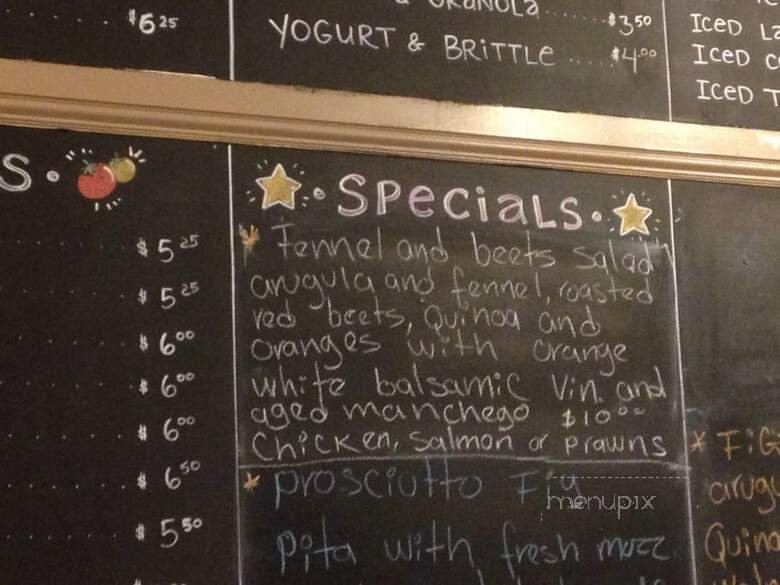 $6 25
& GRANOLA ...... $3 50
YOGURT & BRITTLE ..... $4.00
ICED
ICED
ICED T
S.
$ 5 25
$ 5 25
$ 6 00
$ 6 00
$ 6 00
$ 6 50
$ 5 50
• SPecialS •
* Fennel and beets Salad
arugula and fennel, roasted
red beets, Quinoa and
oranges with orange
white balsamic Vin. and
aged manchego $10 00
Chicken, Salmon or prawns
* prosciutto Fig
pita with fresh mozz.
* FiG
arugu
Quino
menupix